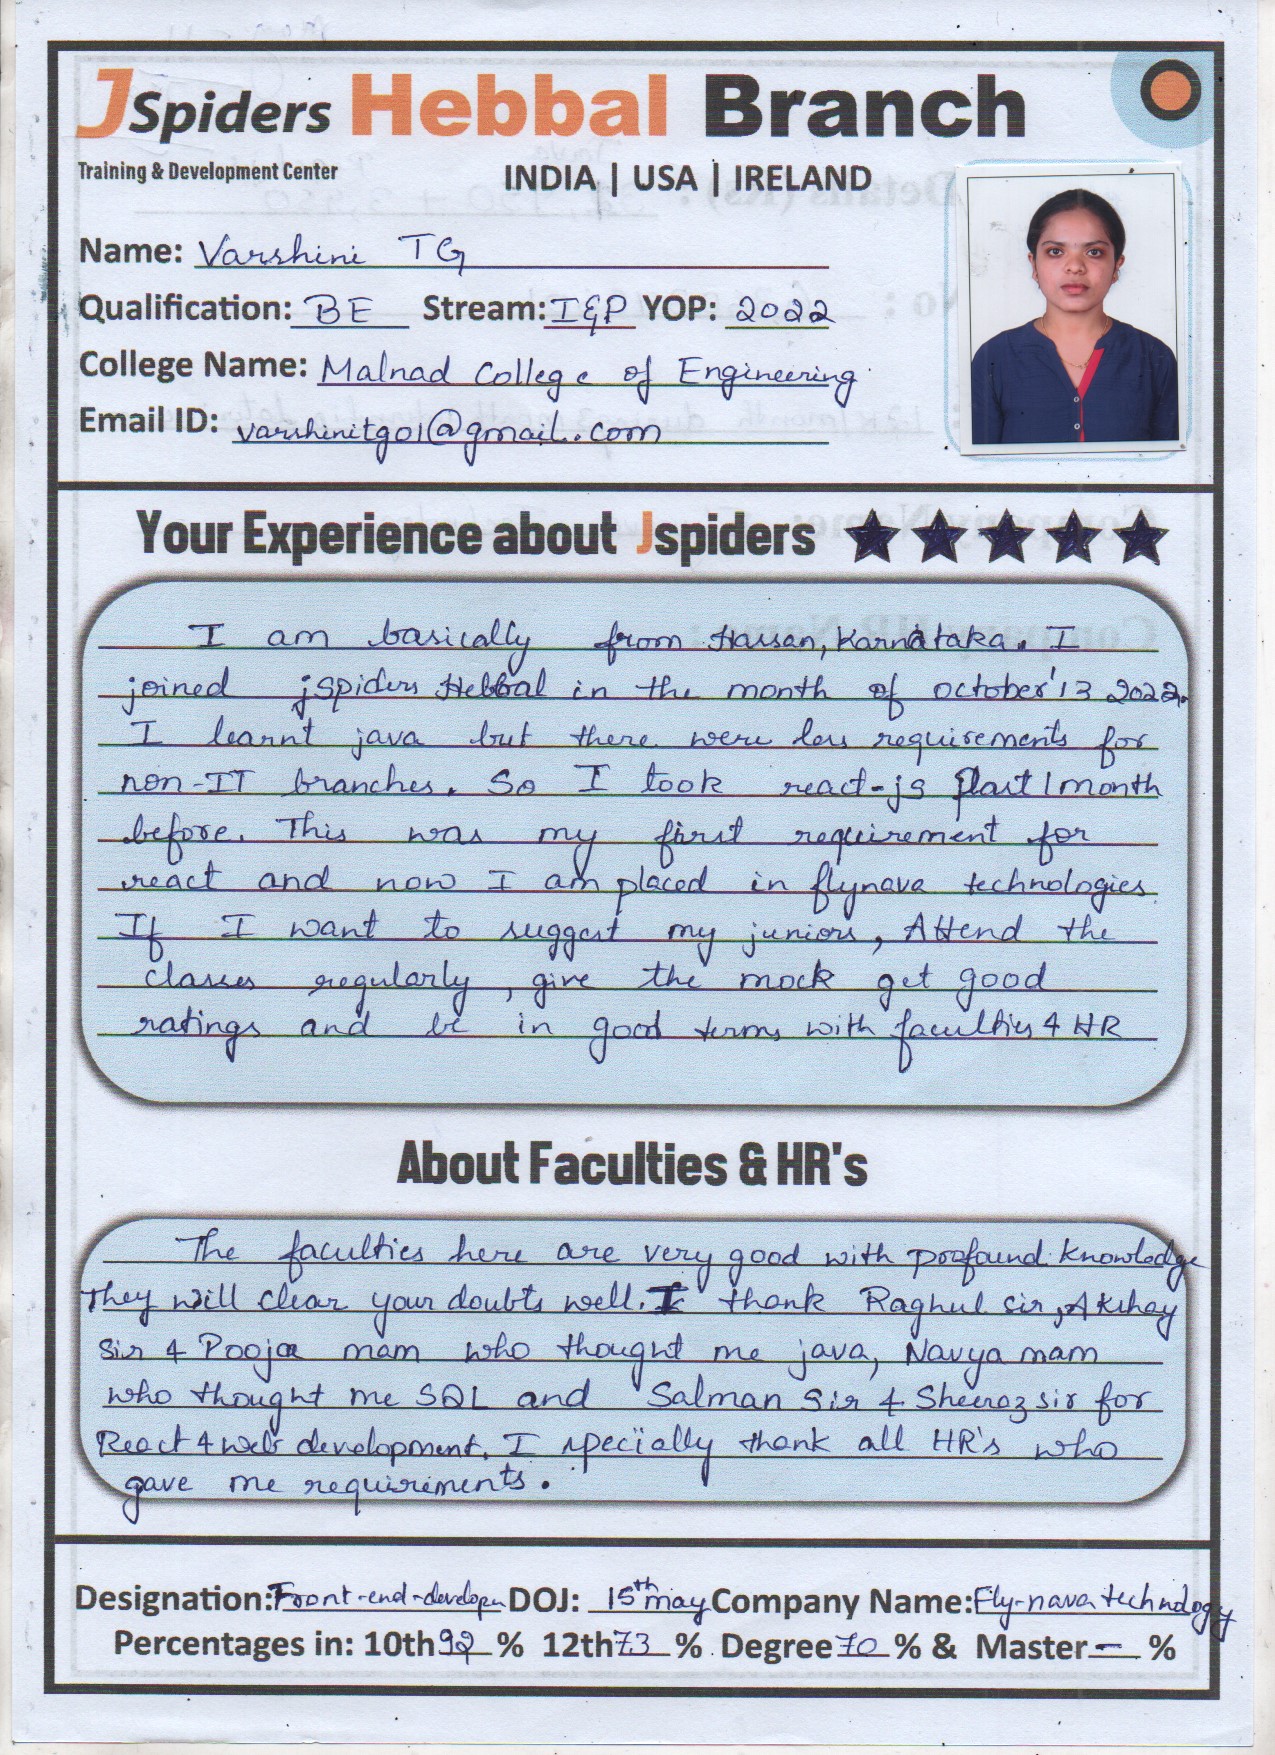 JSpiders Hebbal Branch
Training & Development Center
INDIA | USA | IRELAND
Name: Varshini TG
Qualification: BE Stream: I&P YOP: 2022
College Name: Malnad College of Engineering
Email ID: varshinitg01@gmail.com
Your Experience about Jspiders
I am basically from Hassan, Karnataka. I
joined jspiders Hebbal in the month of october'13 2022.
I learnt java but there were less requirements for
non-IT branches. So I took react-js last 1 month
before. This was my first requirement for
react and now I am placed in flynava technologies
If I want to suggest my juniors, Attend the
classes regularly, give the mock get good
ratings and be in good terms with faculties & HR
About Faculties & HR's
The faculties here are very good with profound knowledge
They will clear your doubts well. I thank Raghul sir, Akshay
Sir & Pooja mam who thought me java, Navya mam
who thought me SQL and Salman Sir & Sheeraz sir for
React & web development. I specially thank all HR's who
gave me requirements.
Designation: Front-end-developer DOJ: 15th may Company Name: Fly-nava technology
Percentages in: 10th 92 % 12th 73 % Degree 70 % & Master - %